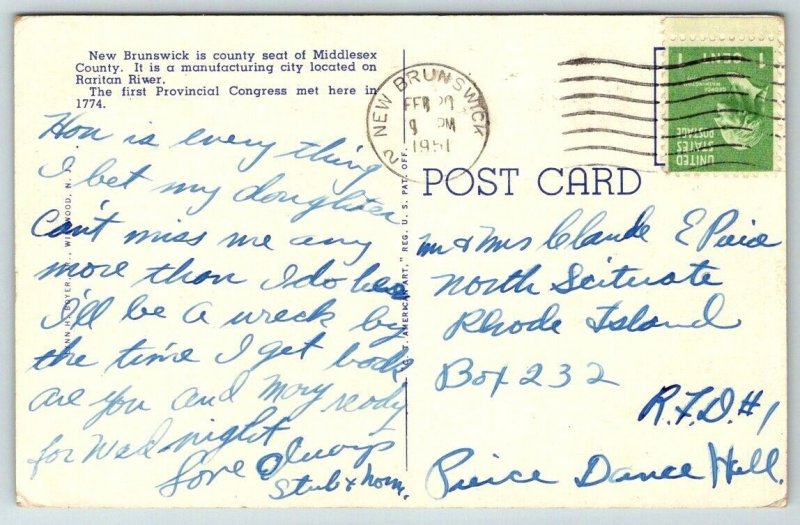 New Brunswick is county seat of Middlesex
County. It is a manufacturing city located on
Raritan River.
The first Provincial Congress met here in
1774.
How is every thing
I bet my doughter
Can't miss me any
more than I do her
I'll be a wreck by
the time I get back
are you and Mary ready
for Wed night
love Always
Stub & Norm.
REG. U.S. PAT. OFF.
AMERICAN ART."
BOYER, WILDWOOD, N. J.
NEW BRUNSWICK
FEB 20
9 PM
1951
2
1 CENT 1
GEORGE WASHINGTON
UNITED
STATES
POSTAGE
POST CARD
Mr & Mrs Claude E Peirce
North Scituate
Rhode Island
Box 232
R.F.D. #1
Peirce Dance Hall.